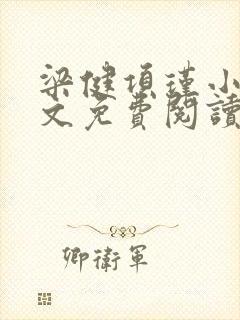 梁健項瑾小
文免費閱讀
卿衛軍